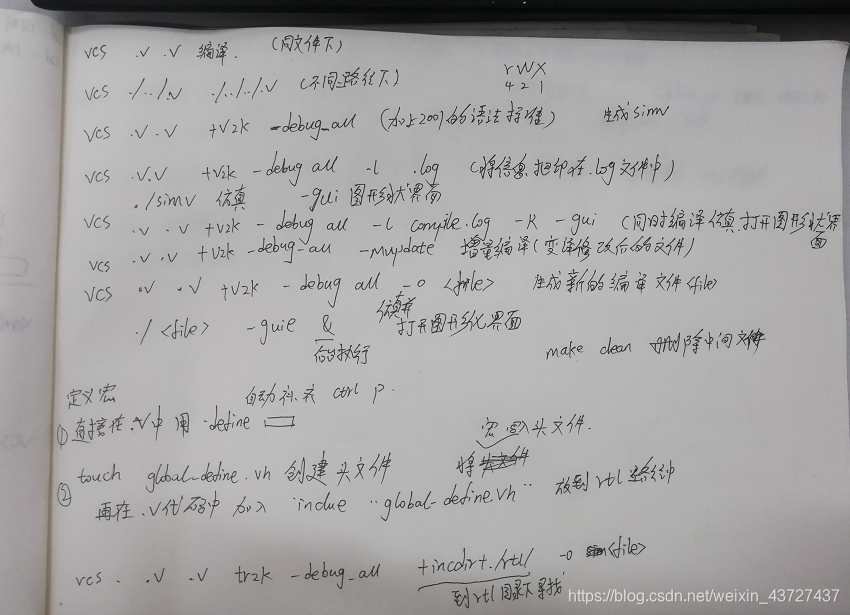 vcs .v .v 编译 (同文件下)
vcs ./../.v ./././.v (不同路径下)
rwx
421
vcs .v .v +v2k -debug_all (加上2001的语法标准) 生成simv
vcs .v.v +v2k -debug all -l .log (将信息打印在.log文件中)
./simv 仿真 -gui 图形状界面
vcs .v .v +v2k -debug all -l compile.log -R -gui (同时编译仿真,打开图形状界面
vcs .v .v +v2k -debug_all -mupdate 增量编译(变译修改后的文件)
vcs .v .v +v2k -debug all -o <file> 生成新的编译文件<file>
./<file> -guie & 仿真并打开图形化界面
后台执行
make clean 删除中间文件
定义宏 自动补齐 ctrl p.
①直接在.v中用 `define
宏写入头文件.
② touch global-define.vh 创建头文件 将
再在.v代码中加入 `inclue "global-define.vh" 放到rtl路径中
vcs . .v .v tr2k -debug_all +incdir+./rtl/ -o <file>
到rtl目录下寻找
https://blog.csdn.net/weixin_43727437